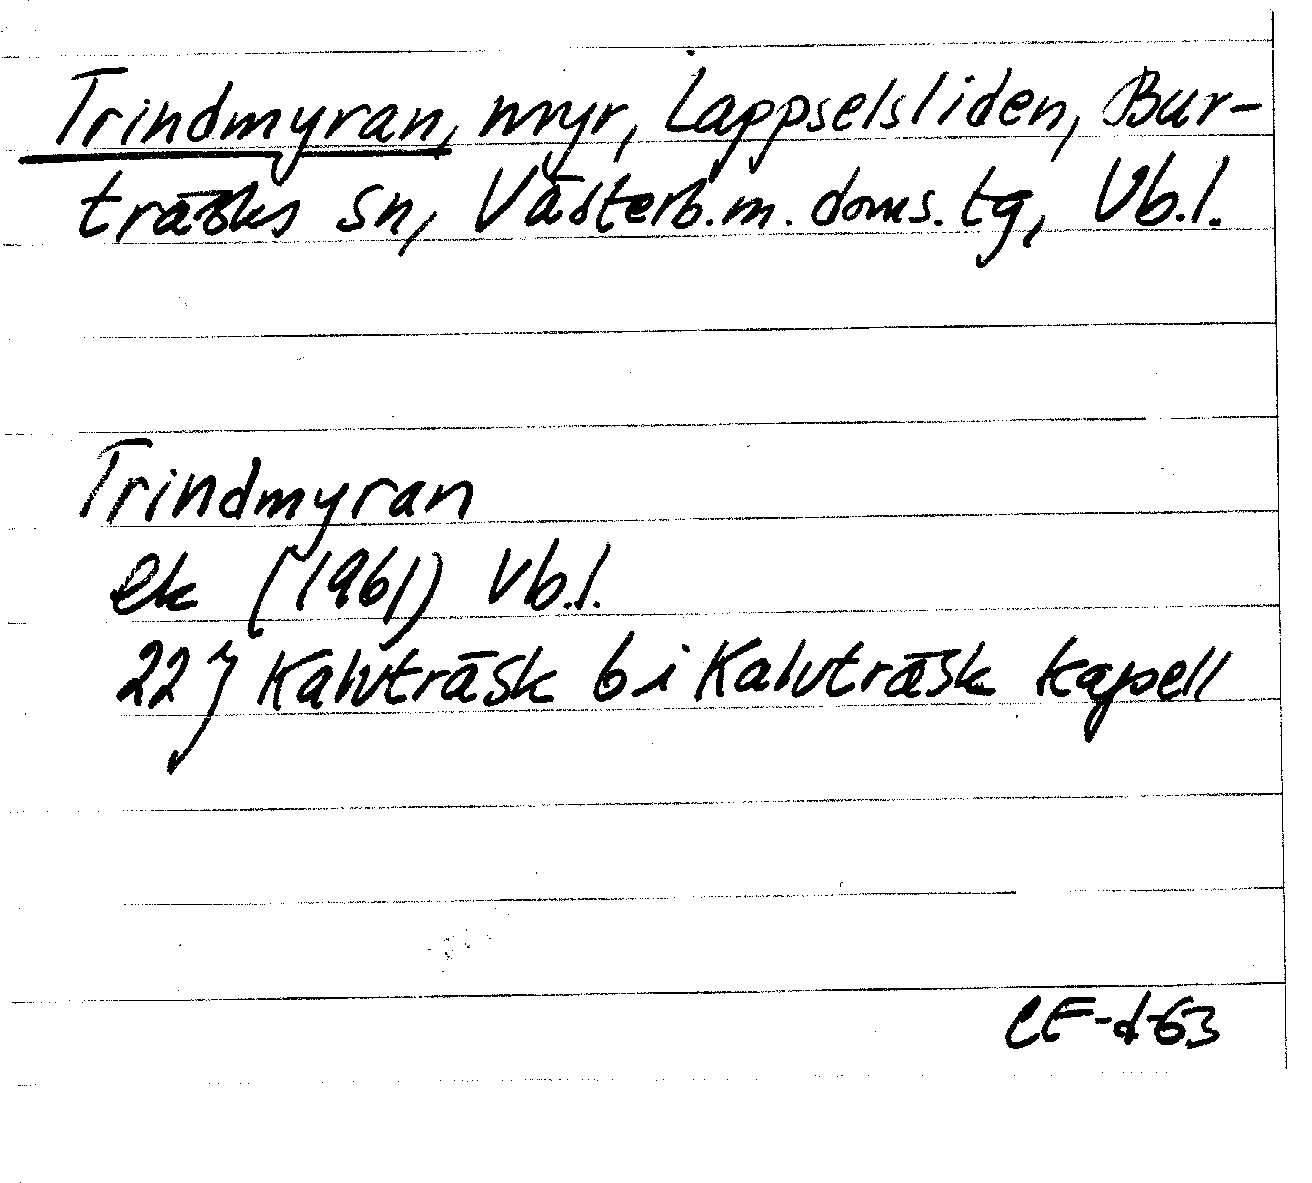 Trindmyran, myr, Lappselsliden, Bur-
träsks sn, Västerb.m. doms.tg, Vb.l.
Trindmyran
ek (1961) Vb.l.
22 j Kalvträsk 6 i Kalvträsk kapell
CE-d-63